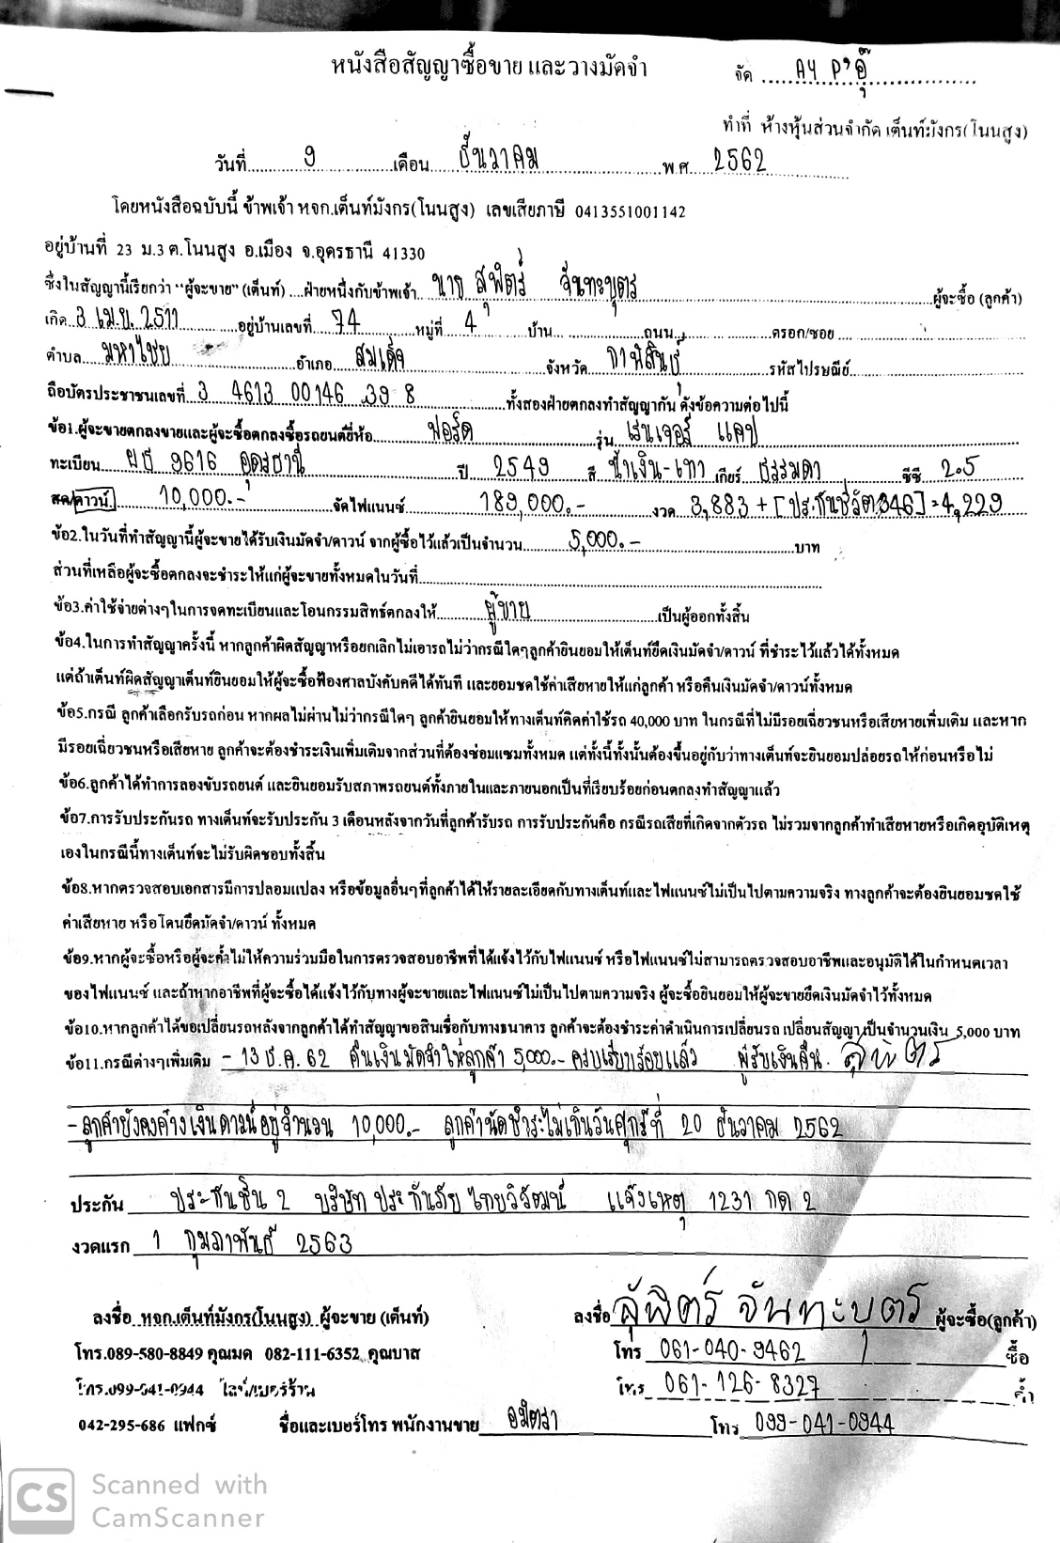 หนังสือสัญญาซื้อขาย และวางมัดจำ
จัด AY P'อุ๊
ทำที่ ห้างหุ้นส่วนจำกัด เต็นท์มังกร(โนนสูง)
วันที่ 9 เดือน ธันวาคม พ.ศ. 2562
โดยหนังสือฉบับนี้ ข้าพเจ้า หจก.เต็นท์มังกร(โนนสูง) เลขเสียภาษี 0413551001142
อยู่บ้านที่ 23 ม.3 ต.โนนสูง อ.เมือง จ.อุดรธานี 41330
ซึ่งในสัญญานี้เรียกว่า "ผู้จะขาย" (เต็นท์) ...ฝ่ายหนึ่งกับข้าพเจ้า นาย สุพิตร์ จันทะบุตร ผู้จะซื้อ (ลูกค้า)
เกิด 3 เม.ย. 2511 อยู่บ้านเลขที่ 74 หมู่ที่ 4 บ้าน ถนน ตรอก/ซอย
ตำบล มหาไชย อำเภอ สมเด็จ จังหวัด กาฬสินธุ์ รหัสไปรษณีย์
ถือบัตรประชาชนเลขที่ 3 4613 00146 39 8 ทั้งสองฝ่ายตกลงทำสัญญากัน ดังข้อความต่อไปนี้
ข้อ1.ผู้จะขายตกลงขายและผู้จะซื้อตกลงซื้อรถยนต์ยี่ห้อ ฟอร์ด รุ่น เรนเจอร์ แคป
ทะเบียน ผธ 9616 อุดรธานี ปี 2549 สี น้ำเงิน-เทา เกียร์ ธรรมดา ซีซี 2.5
สด/ดาวน์ 10,000.- จัดไฟแนนซ์ 189,000.- งวด 3,883 + [ประกันชีวิต 346] = 4,229
ข้อ2.ในวันที่ทำสัญญานี้ผู้จะขายได้รับเงินมัดจำ/ดาวน์ จากผู้ซื้อไว้แล้วเป็นจำนวน 5,000.- บาท
ส่วนที่เหลือผู้จะซื้อตกลงจะชำระให้แก่ผู้จะขายทั้งหมดในวันที่
ข้อ3.ค่าใช้จ่ายต่างๆในการจดทะเบียนและโอนกรรมสิทธ์ตกลงให้ ผู้ขาย เป็นผู้ออกทั้งสิ้น
ข้อ4.ในการทำสัญญาครั้งนี้ หากลูกค้าผิดสัญญาหรือยกเลิกไม่เอารถไม่ว่ากรณีใดๆลูกค้ายินยอมให้เต็นท์ยึดเงินมัดจำ/ดาวน์ ที่ชำระไว้แล้วได้ทั้งหมด
แต่ถ้าเต็นท์ผิดสัญญาเต็นท์ยินยอมให้ผู้จะซื้อฟ้องศาลบังคับคดีได้ทันที และยอมชดใช้ค่าเสียหายให้แก่ลูกค้า หรือคืนเงินมัดจำ/ดาวน์ทั้งหมด
ข้อ5.กรณี ลูกค้าเลือกรับรถก่อน หากผลไม่ผ่านไม่ว่ากรณีใดๆ ลูกค้ายินยอมให้ทางเต็นท์คิดค่าใช้รถ 40,000 บาท ในกรณีที่ไม่มีรอยเฉี่ยวชนหรือเสียหายเพิ่มเติม และหาก
มีรอยเฉี่ยวชนหรือเสียหาย ลูกค้าจะต้องชำระเงินเพิ่มเติมจากส่วนที่ต้องซ่อมแซมทั้งหมด แต่ทั้งนี้ทั้งนั้นต้องขึ้นอยู่กับว่าทางเต็นท์จะยินยอมปล่อยรถให้ก่อนหรือไม่
ข้อ6.ลูกค้าได้ทำการลองขับรถยนต์ และยินยอมรับสภาพรถยนต์ทั้งภายในและภายนอกเป็นที่เรียบร้อยก่อนตกลงทำสัญญาแล้ว
ข้อ7.การรับประกันรถ ทางเต็นท์จะรับประกัน 3 เดือนหลังจากวันที่ลูกค้ารับรถ การรับประกันคือ กรณีรถเสียที่เกิดจากตัวรถ ไม่รวมจากลูกค้าทำเสียหายหรือเกิดอุบัติเหตุ
เองในกรณีนี้ทางเต็นท์จะไม่รับผิดชอบทั้งสิ้น
ข้อ8.หากตรวจสอบเอกสารมีการปลอมแปลง หรือข้อมูลอื่นๆที่ลูกค้าได้ให้รายละเอียดกับทางเต็นท์และไฟแนนซ์ไม่เป็นไปตามความจริง ทางลูกค้าจะต้องยินยอมชดใช้
ค่าเสียหาย หรือโดนยึดมัดจำ/ดาวน์ ทั้งหมด
ข้อ9.หากผู้จะซื้อหรือผู้จะค้ำไม่ให้ความร่วมมือในการตรวจสอบอาชีพที่ได้แจ้งไว้กับไฟแนนซ์ หรือไฟแนนซ์ไม่สามารถตรวจสอบอาชีพและอนุมัติได้ในกำหนดเวลา
ของไฟแนนซ์ และถ้าหากอาชีพที่ผู้จะซื้อได้แจ้งไว้กับทางผู้จะขายและไฟแนนซ์ไม่เป็นไปตามความจริง ผู้จะซื้อยินยอมให้ผู้จะขายยึดเงินมัดจำไว้ทั้งหมด
ข้อ10.หากลูกค้าได้ขอเปลี่ยนรถหลังจากลูกค้าได้ทำสัญญาขอสินเชื่อกับทางธนาคาร ลูกค้าจะต้องชำระค่าดำเนินการเปลี่ยนรถ เปลี่ยนสัญญาเป็นจำนวนเงิน 5,000 บาท
ข้อ11.กรณีต่างๆเพิ่มเติม - 13 ธ.ค. 62 คืนเงินมัดจำให้ลูกค้า 5,000.- ครบเรียบร้อยแล้ว ผู้รับเงินคืน. สุพิตร
- ลูกค้ายังคงค้างเงินดาวน์อยู่จำนวน 10,000.- ลูกค้านัดชำระไม่เกินวันศุกร์ที่ 20 ธันวาคม 2562
ประกัน ประกันชั้น 2 บริษัท ประกันภัย ไทยวิวัฒน์ แจ้งเหตุ 1231 กด 2
งวดแรก 1 กุมภาพันธ์ 2563
ลงชื่อ หจก.เต็นท์มังกร(โนนสูง) ผู้จะขาย (เต็นท์) ลงชื่อ สุพิตร์ จันทะบุตร ผู้จะซื้อ(ลูกค้า)
โทร.089-580-8849 คุณมด 082-111-6352 คุณบาส โทร 061-040-9462 ซื้อ
โทร.099-041-0944 ไลน์/เบอร์ร้าน โทร 061-126-8327 ค้ำ
042-295-686 แฟกซ์ ชื่อและเบอร์โทร พนักงานขาย โทร 099-041-0944
CS Scanned with
CamScanner